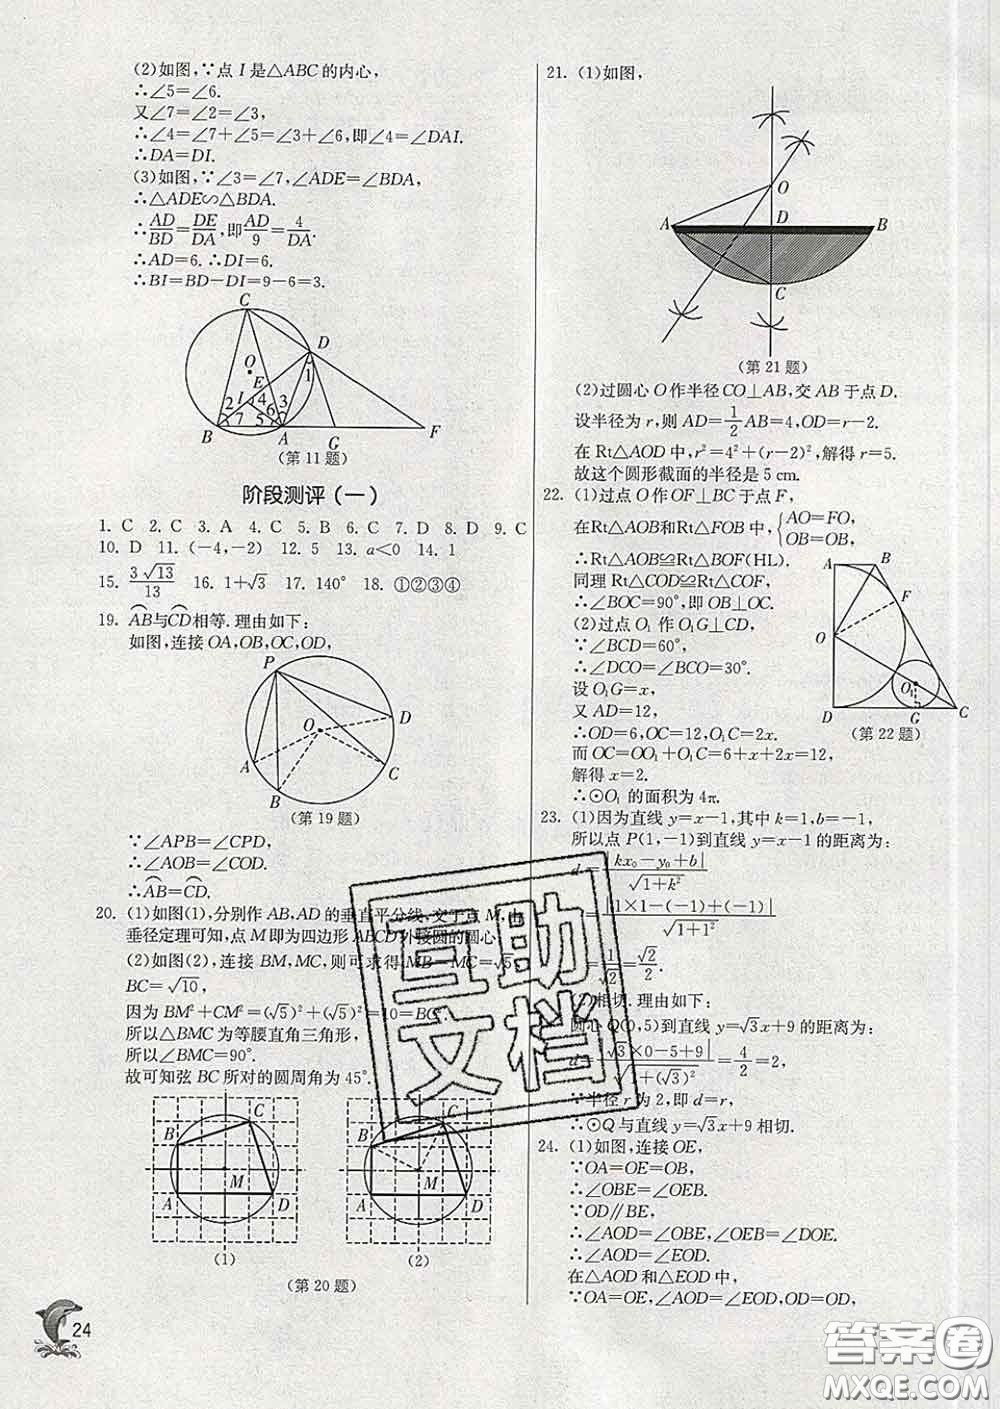 (2)如图,∵点 I 是△ABC 的内心,
∴∠5=∠6.
又∠7=∠2=∠3,
∴∠4=∠7+∠5=∠3+∠6,即∠4=∠DAI.
∴DA=DI.
(3)如图,∵∠3=∠7,∠ADE=∠BDA,
∴△ADE∽△BDA.
∴AD/BD=DE/DA,即AD/9=4/DA.
∴AD=6. ∴DI=6.
∴BI=BD−DI=9−6=3.
C
O
D
E
1
2 I 4 3
7 5 6
B A G F
(第 11 题)
阶段测评(一)
1. C 2. C 3. A 4. C 5. B 6. C 7. D 8. D 9. C
10. D 11. (−4,−2) 12. 5 13. a<0 14. 1
15. 3√13/13 16. 1+√3 17. 140° 18. ①②③④
19. AB与CD相等. 理由如下:
如图,连接 OA,OB,OC,OD,
P
O
D
A
B
C
(第 19 题)
∵∠APB=∠CPD,
∴∠AOB=∠COD.
∴AB=CD.
20. (1)如图(1),分别作 AB,AD 的垂直平分线,交于点 M,由
垂径定理可知,点 M 即为四边形 ABCD 外接圆的圆心.
(2)如图(2),连接 BM,MC,则可求得 MB=MC=√5,
BC=√10,
因为 BM²+CM²=(√5)²+(√5)²=10=BC²,
所以△BMC 为等腰直角三角形,
所以∠BMC=90°.
故可知弦 BC 所对的圆周角为 45°.
B C M A D
(1)
B C M A D
(2)
(第 20 题)
24
21. (1)如图,
O
A D B
C
(第 21 题)
(2)过圆心 O 作半径 CO⊥AB,交 AB 于点 D.
设半径为 r,则 AD=1/2 AB=4,OD=r−2.
在 Rt△AOD 中,r²=4²+(r−2)²,解得 r=5.
故这个圆形截面的半径是 5 cm.
22. (1)过点 O 作 OF⊥BC 于点 F,
在Rt△AOB和Rt△FOB 中,{AO=FO, OB=OB,
∴Rt△AOB≌Rt△BOF(HL).
同理 Rt△COD≌Rt△COF,
∴∠BOC=90°,即 OB⊥OC.
(2)过点 O₁ 作 O₁G⊥CD,
∵∠BCD=60°,
∴∠DCO=∠BCO=30°.
设 O₁G=x,
又 AD=12,
∴OD=6,OC=12,O₁C=2x.
而 OC=OO₁+O₁C=6+x+2x=12,
解得 x=2.
∴⊙O₁ 的面积为 4π.
A B
F
O
O₁
D G C
(第 22 题)
23. (1)因为直线 y=x−1,其中 k=1,b=−1,
所以点 P(1,−1)到直线 y=x−1 的距离为:
d=|kx₀−y₀+b|/√(1+k²)
=|1×1−(−1)+(−1)|/√(1+1²)
=1/√2=√2/2.
(2)相切. 理由如下:
圆心 Q(0,5)到直线 y=√3x+9 的距离为:
d=|√3×0−5+9|/√(1+(√3)²)=4/2=2,
∵半径 r 为 2,即 d=r,
∴⊙Q 与直线 y=√3x+9 相切.
24. (1)如图,连接 OE,
∵OA=OE=OB,
∴∠OBE=∠OEB.
∵OD∥BE,
∴∠AOD=∠OBE,∠OEB=∠DOE.
∴∠AOD=∠EOD.
在△AOD 和△EOD 中,
∵OA=OE,∠AOD=∠EOD,OD=OD,
互助
文档
答案卷
MXQE.COM